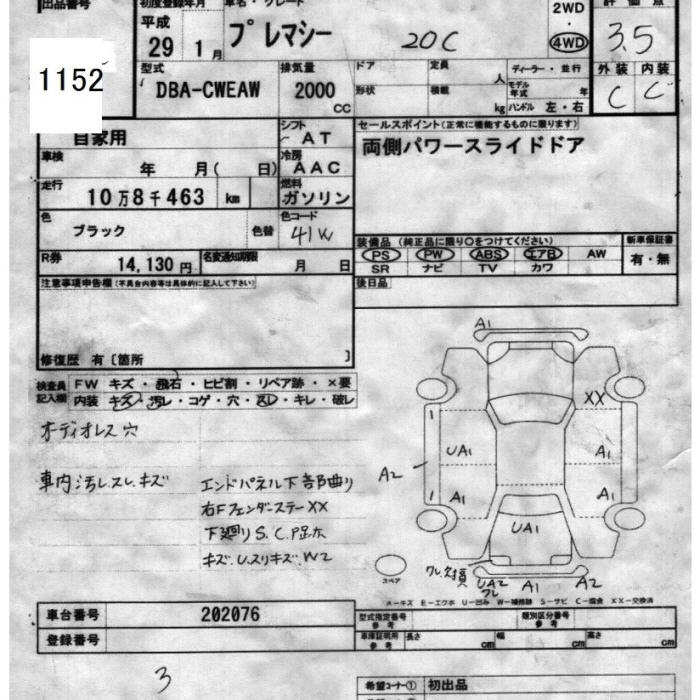 出品番号
初度登録年月
車名・グレード
評価点
平成
29 1月
プレマシー
20C
2WD
・
4WD
3.5
1152
型式
DBA-CWEAW
排気量
2000
CC
ドア
定員
人
ディーラー・並行
形状
積載
kg
モデル年式
年
ハンドル 左・右
外装 内装
C C
自家用
シフト
AT
セールスポイント(正常に機能するものに限ります)
両側パワースライドドア
車検
年 月( 日)
冷房
AAC
走行
10万8千463 km
燃料
ガソリン
色
ブラック
色替
色コード
41W
装備品 (純正品に限り○をつけてください)
新車保証書
PS PW ABS エアB AW
有・無
SR ナビ TV カワ
R券
14,130円
名変通知期限
月 日
後日品
注意事項申告欄(不具合内容等は具体的に記入して下さい)
修復歴 有〔箇所 〕
検査員記入欄
FW キズ・飛石・ヒビ割・リペア跡・×要
内装 キズ・汚レ・コゲ・穴・スレ・キレ・破レ
オーディオレス穴
車内汚レスレキズ
エンドパネル下部曲り
右Fフェンダーステー XX
下廻りS.C.P足ホ
キズ.U.スリキズ.W2
A1
XX
UA1
A1
A2
A1
A1
UA1
UA2
ワレ
A1
A2
スペア
A－キズ E－エクボ U－凹み W－補修跡 S－サビ C－腐食 XX－交換済
車台番号
202076
登録番号
型式指定番号
参考
類別区分番号
参考
車庫証明用
参考
長さ
cm
幅
cm
高さ
cm
3
希望コーナー① 初出品